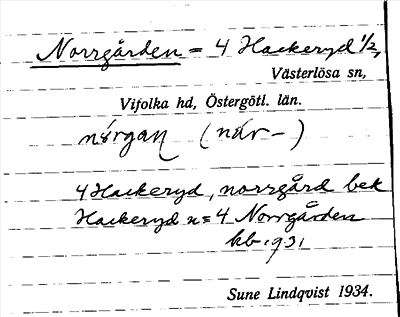 Norrgården = 4 Hackeryd 1/2,
Västerlösa sn,
Vifolka hd, Östergötl. län.
(når-)
4 Hackeryd, norrgård bek
Hackeryd n = 4 Norrgården
kb. 1931
Sune Lindqvist 1934.